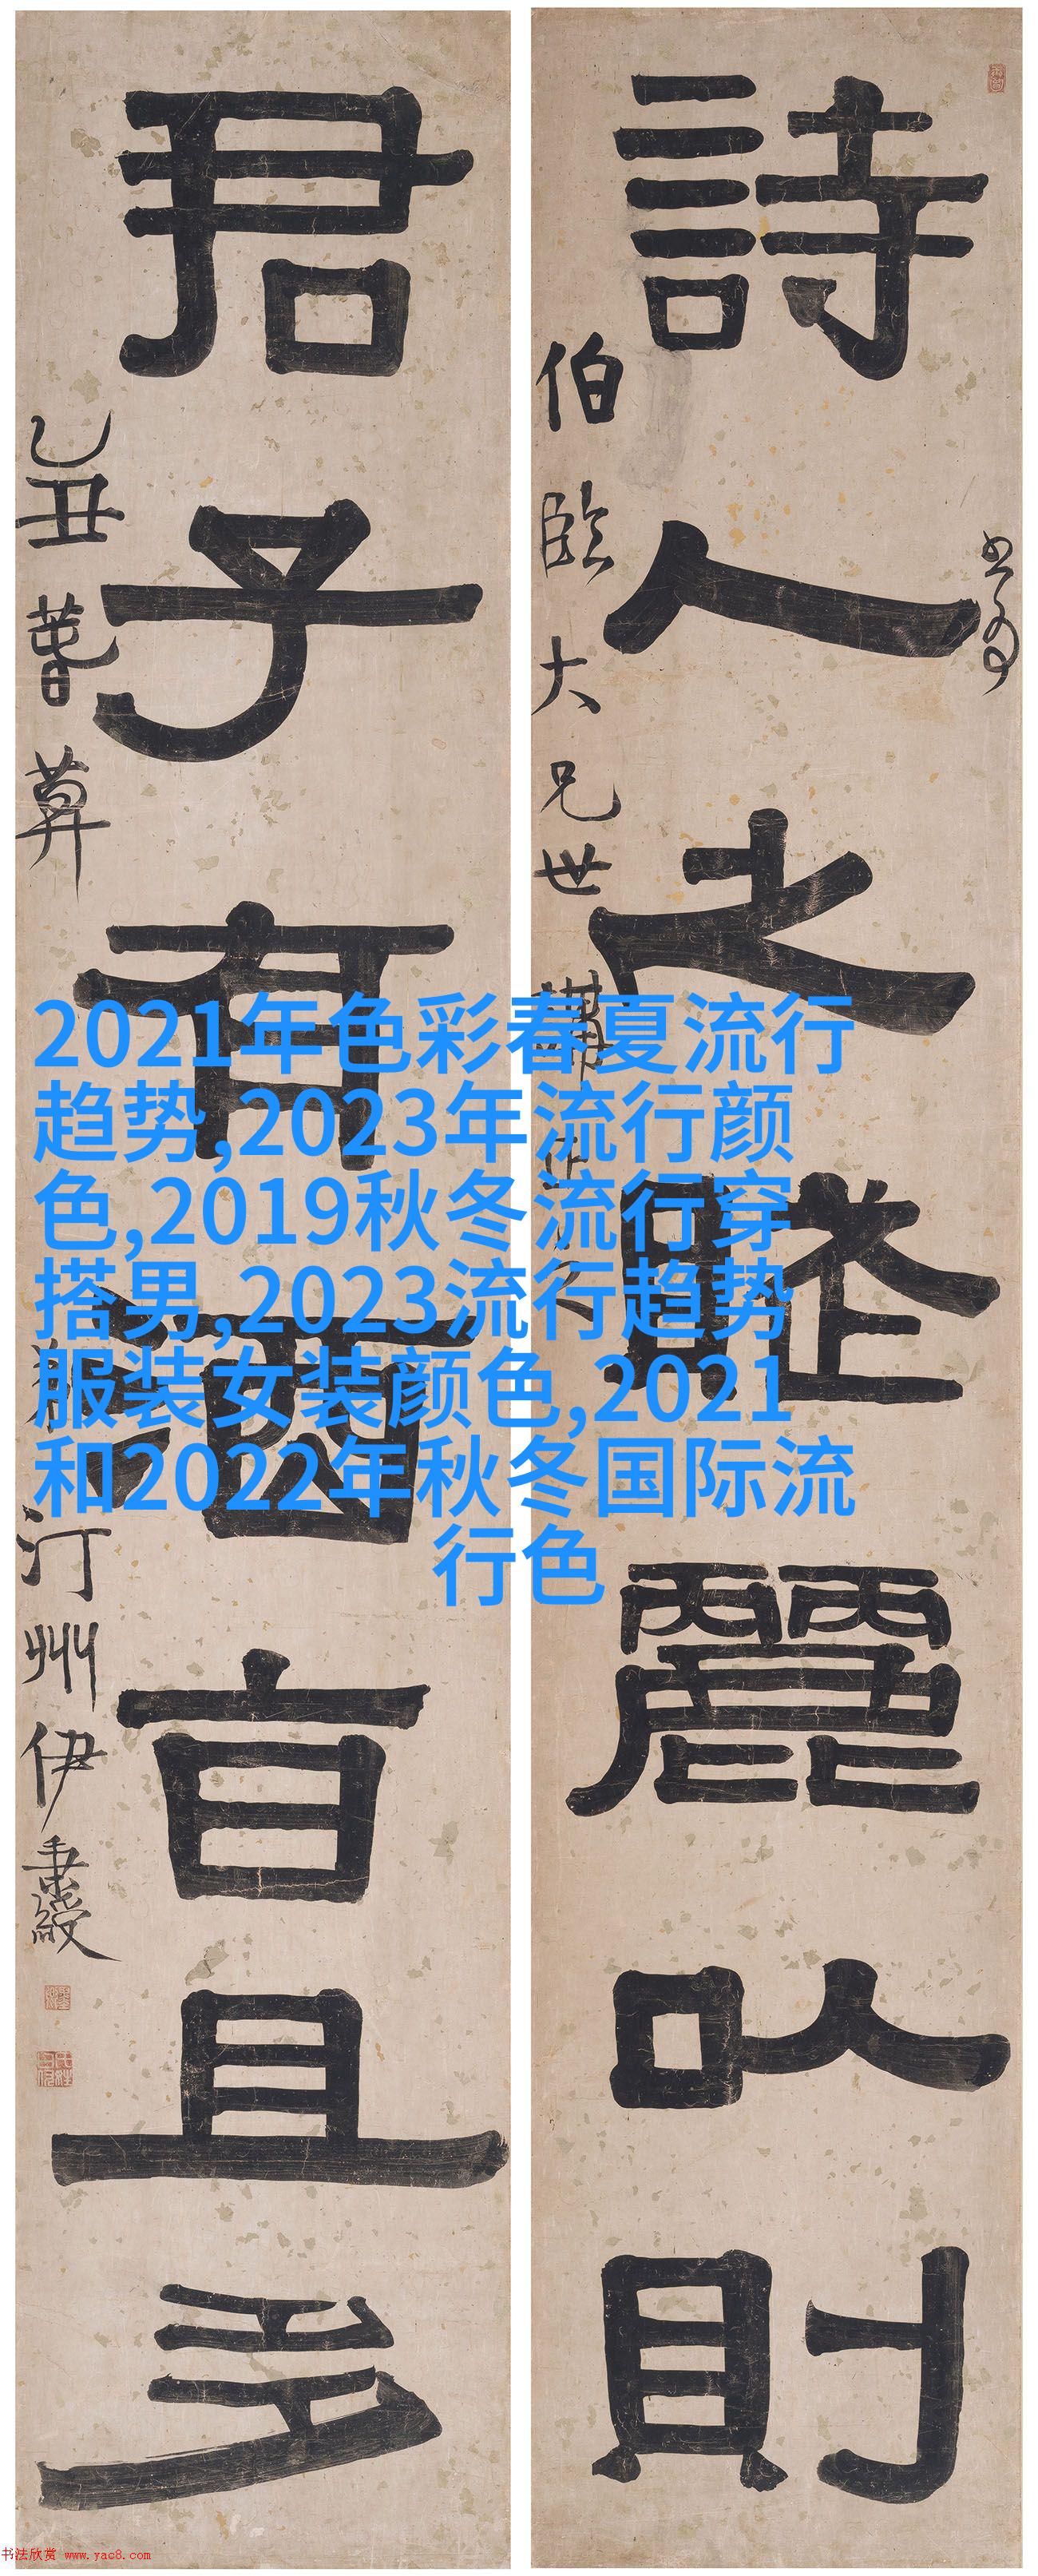 詩人之賦麗以則
書為
伯臨大兄世講正之
君子有酒旨且多
乙丑暮
汀州伊秉綬
2021年色彩春夏流行
趋势,2023年流行颜
色,2019秋冬流行穿
搭男,2023流行趋势
服装女装颜色,2021
和2022年秋冬国际流
行色
书法欣赏 www.yac8.com